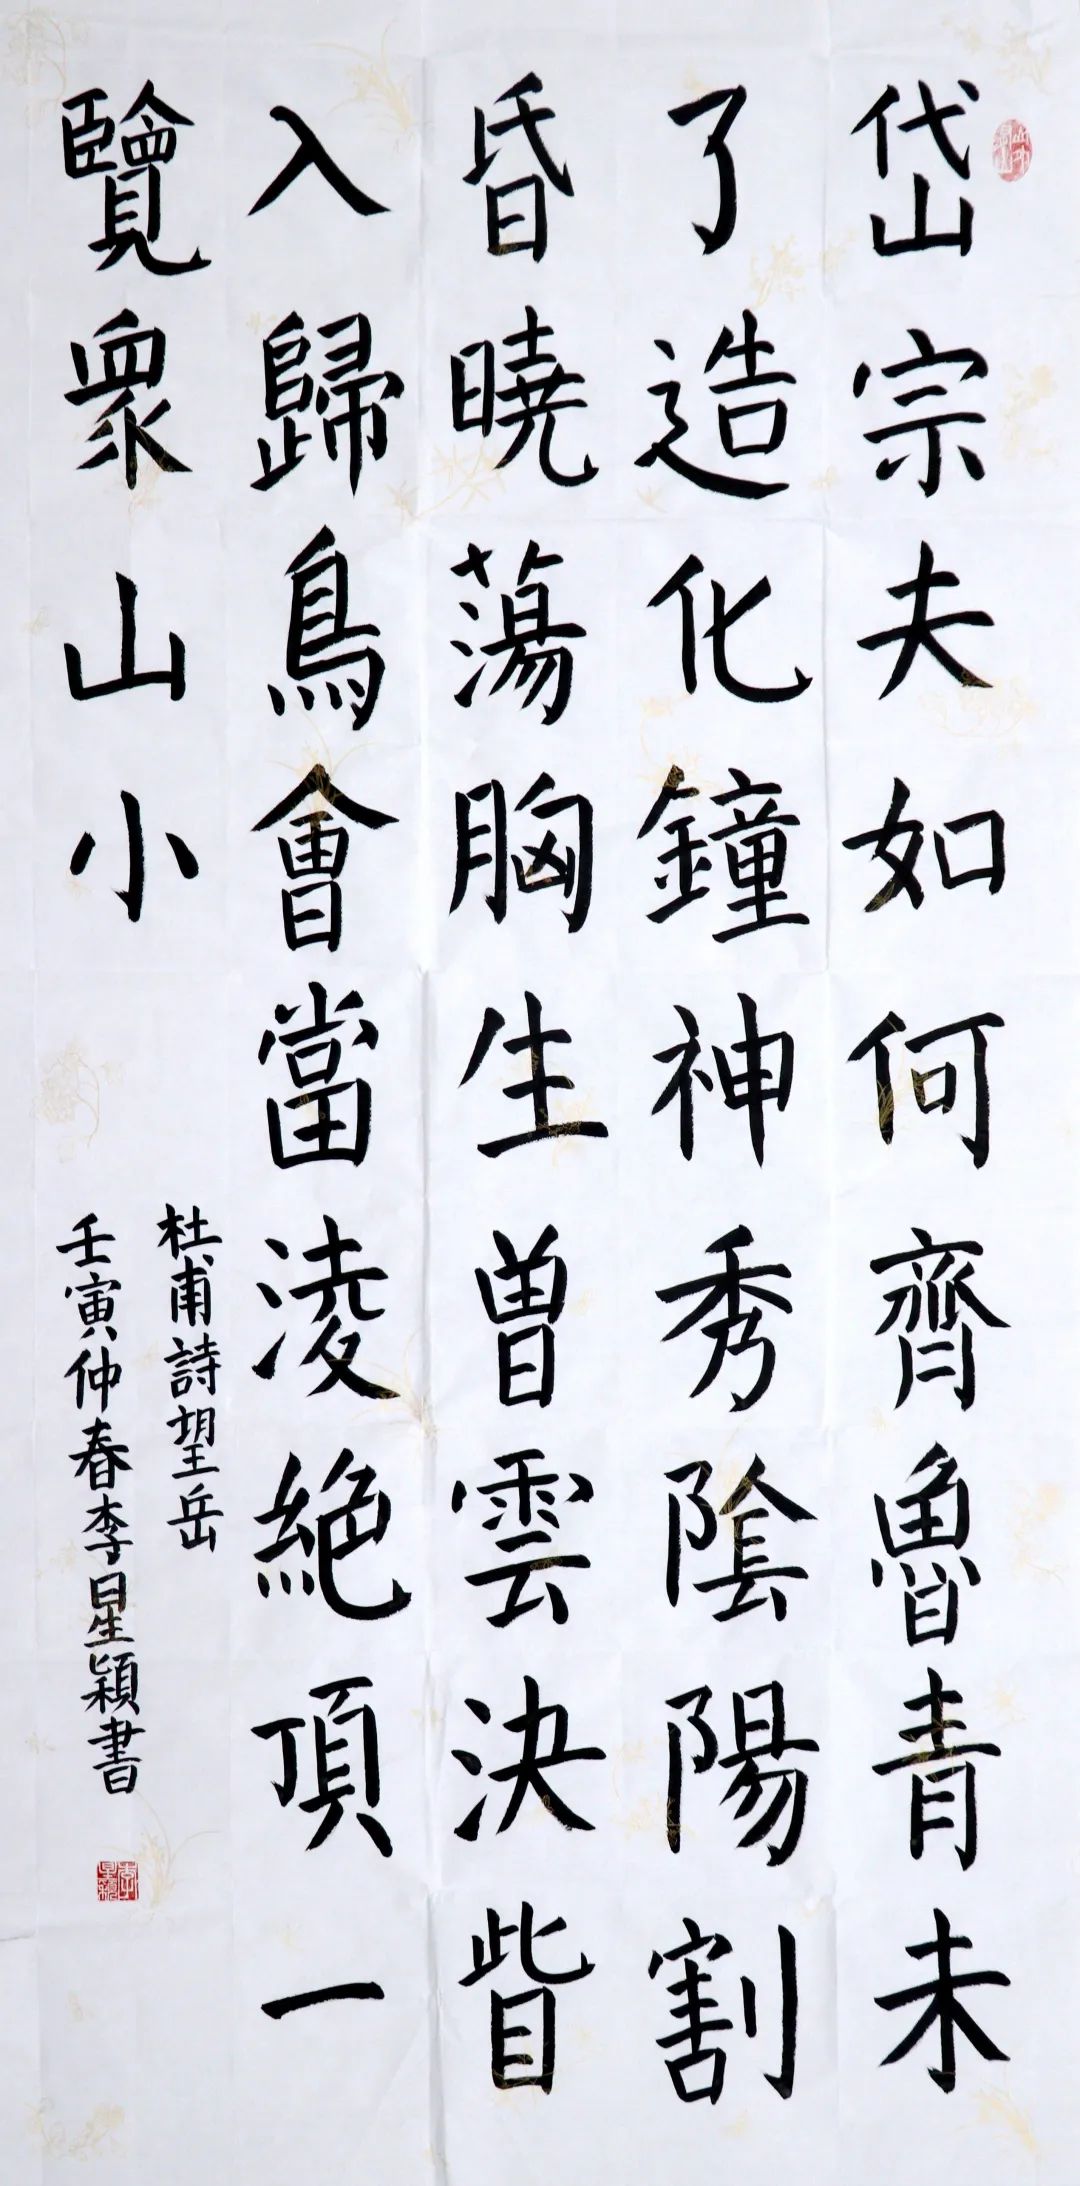 岱宗夫如何齊魯青未
了造化鐘神秀陰陽割
昏曉蕩胸生曽雲決眥
入歸鳥會當淩絕頂一
覽眾山小
杜甫詩望岳
壬寅仲春李星穎書
李星穎